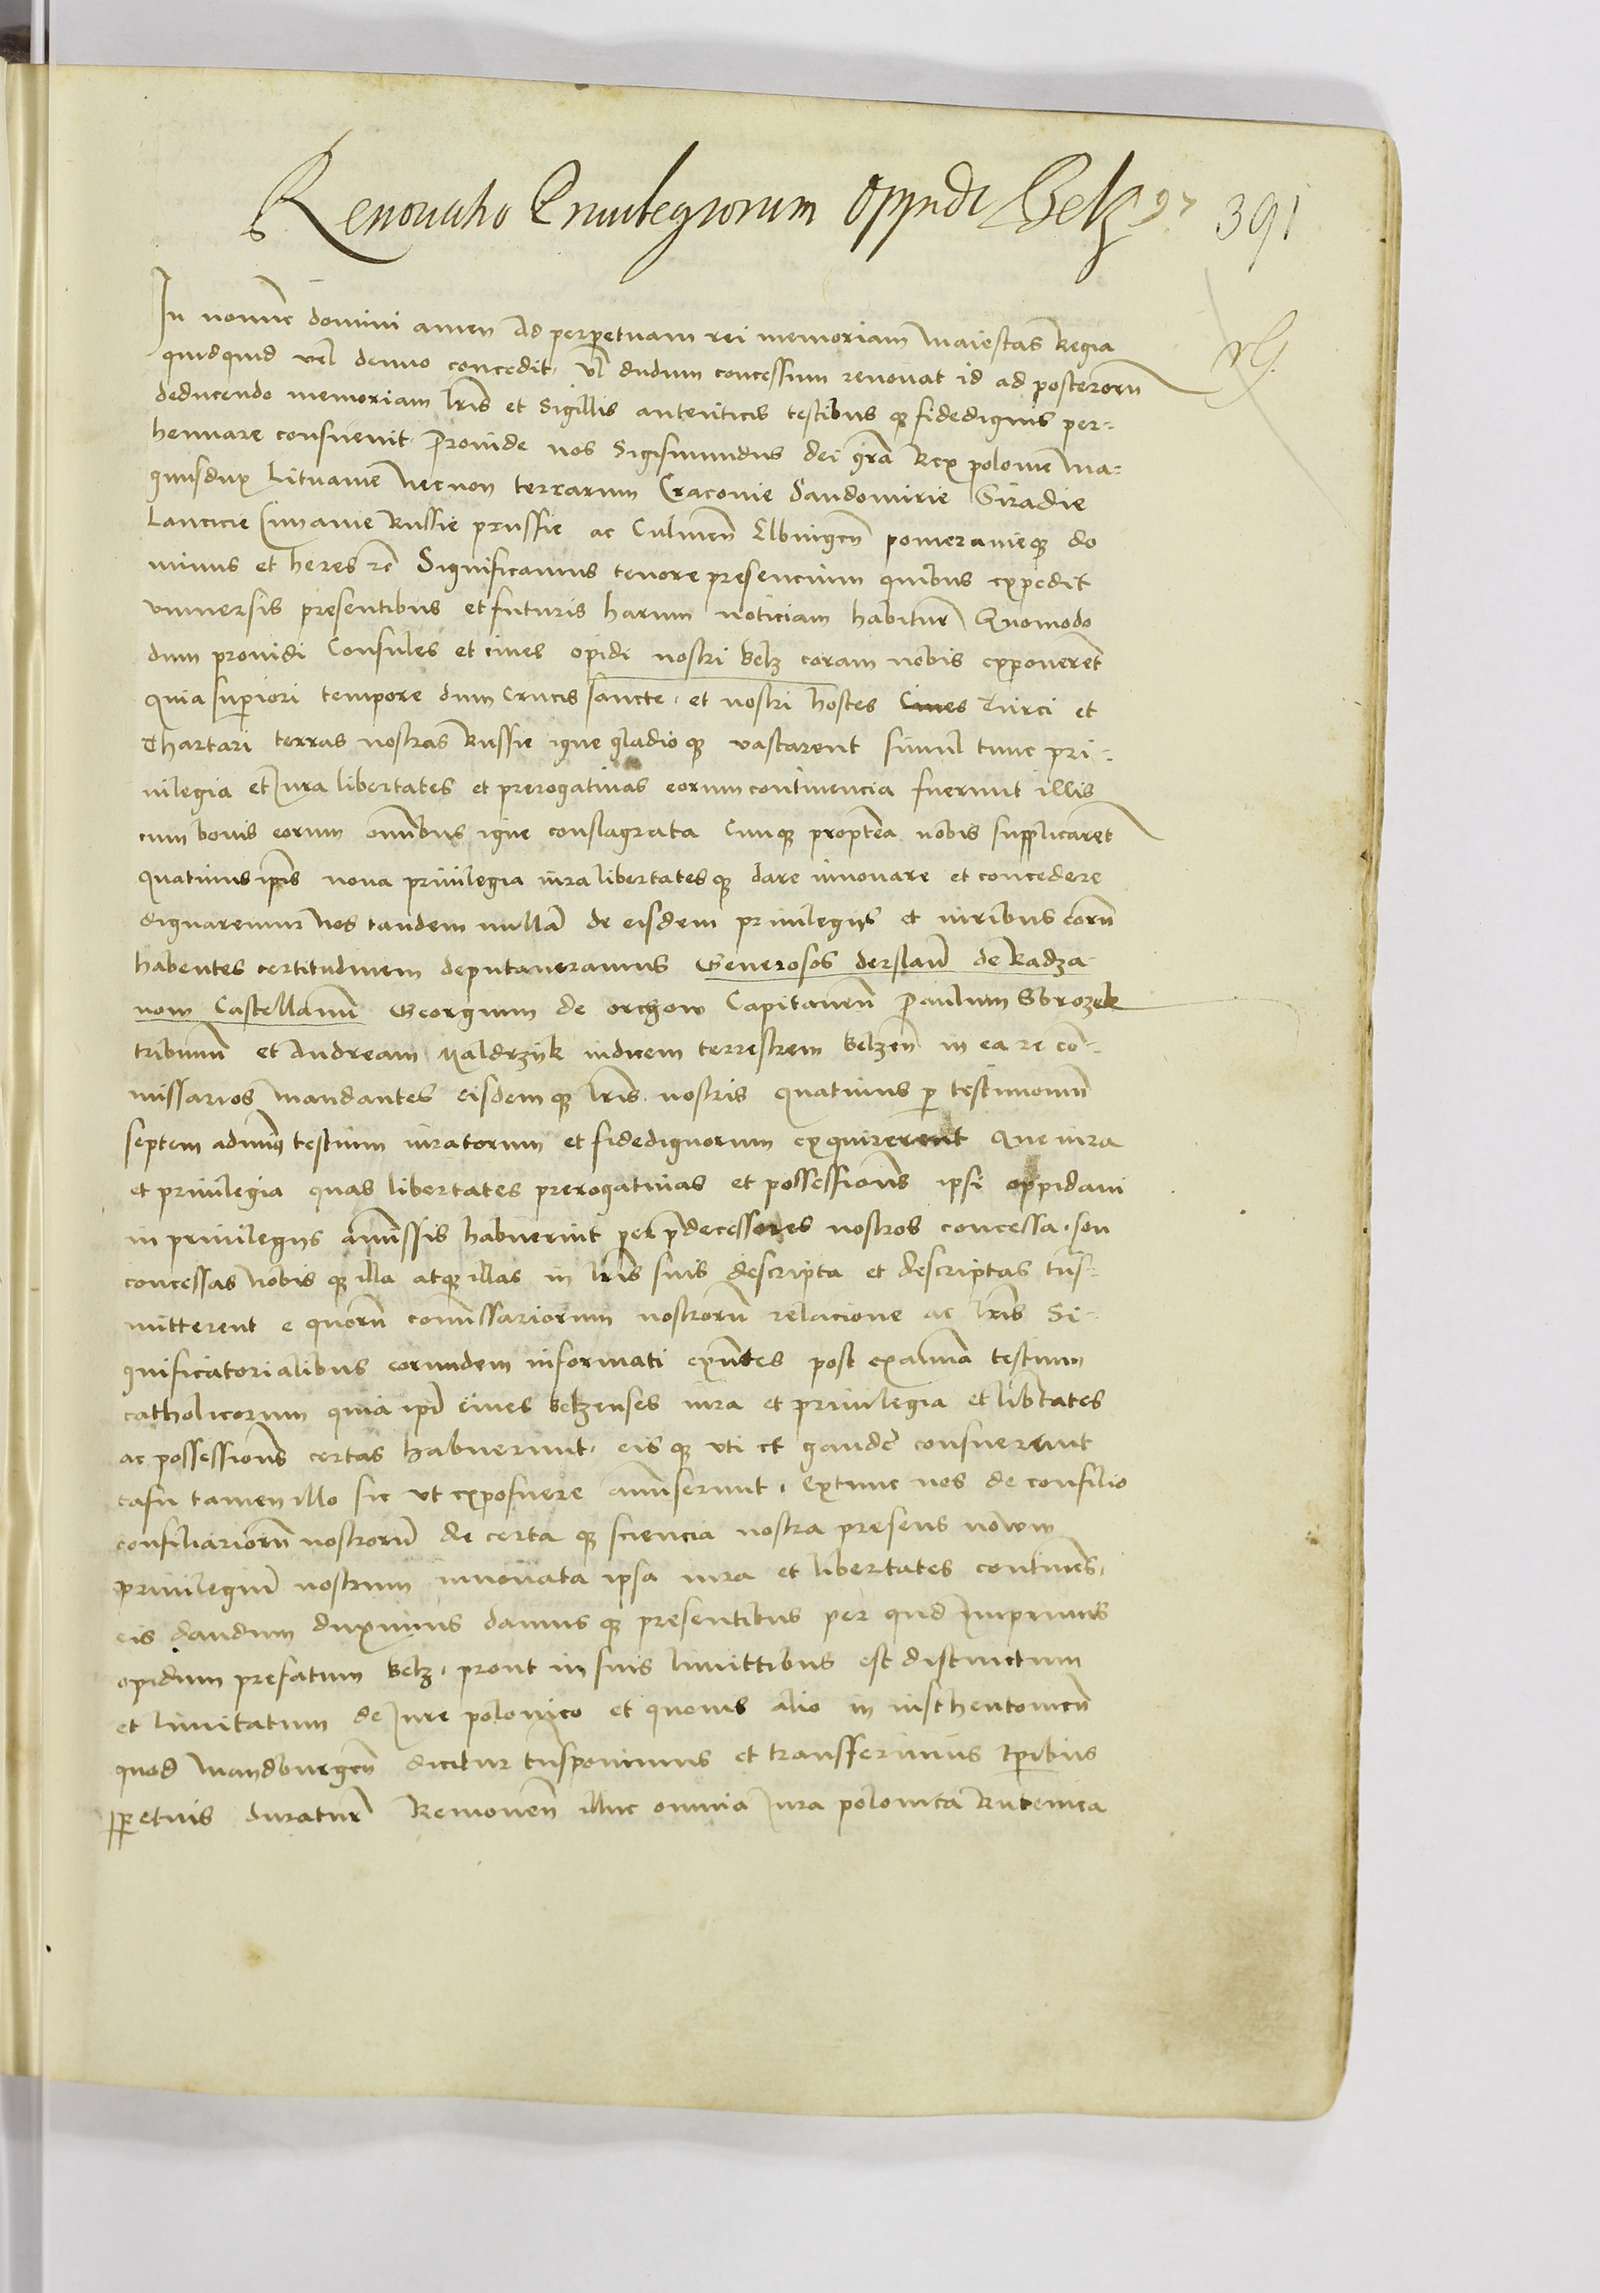 Renouatio Priuilegiorum Oppidi Belz 97 391
In nomine domini amen Ad perpetuam rei memoriam Maiestas Regia
quidquid vel denuo concedit, vl dudum concessum renouat id ad posterorum
deducendo memoriam lris et sigillis autenticis testibus qz fidedignis per-
hennare consueuit Proinde nos Sigismundus dei gra Rex polonie Ma-
gnusdux Lituanie Necnon terrarum Cracouie Sandomirie Siradie
Lancicie Cuiauie Russie prussie ac Culmen Elbingen pomeranieqz do
minus et heres rc Significamus tenore presencium quibus expedit
vniuersis presentibus et futuris harum noticiam habitur Quomodo
dum prouidi Consules et ciues opidi nostri belz coram nobis exponerent
quia superiori tempore dum crucis sancte, et nostri hostes Ciues Turci et
Thartari terras nostras Russie igne gladio qz vastarent simul tunc pri-
uilegia et Jura libertates et prerogatiuas eorum continencia fuerunt illis
cum bonis eorum omnibus igne conflagrata Cumqz proptea nobis supplicaret
quatinus ipis noua priuilegia iura libertates qz dare innouare et concedere
dignaremur Nos tandem nulla de eisdem priuilegijs et iuribus eoru
habentes certitudinem deputaueramus Generosos derslau de Radza-
now Castellanu Georgium de orchow Capitaneu Paulum Sbrozek
tribunu et Andream Maldrzik iudicem terrestrem belzen in ea re co-
missarios Mandantes eisdem qz lris nostris quatinus p testimoniu
septem testium iuratorum et fidedignorum exquirerent que iura
et priuilegia quas libertates prerogatiuas et possessiones ipsi oppidani
in priuilegijs amissis habuerint per pdecessores nostros concessa, seu
concessas Nobis qz illa atqz illas in lris suis descripta et descriptas tns-
mitterent e quoru comissariorum nostroru relacione ac lris Si-
gnificatorialibus eorundem informati exntes post examina testium
catholicorum quia ipi ciues belzenses iura et priuilegia et libtates
ac possessiones certas habuerunt, eis qz vti et gaudere consuerunt
casu tamen illo sic vt exposuere amiserunt, Extunc nos de consilio
consiliarioru nostroru de certa qz sciencia nostra presens nowm
priuilegiu nostrum innouata ipsa iura et libertates continens,
eis dandum duximus damus qz presentibus per qud Inprimis
opidum prefatum belz, prout in suis limittibus est distinctum
et limitatum de Jure polonico et quouis alio in iusthentonicu
quod Maydburgen dicitur tnsponimus et transferimus tpribus
ppetuis duratur Remouen illuc omnia Jura polonica Rutenica